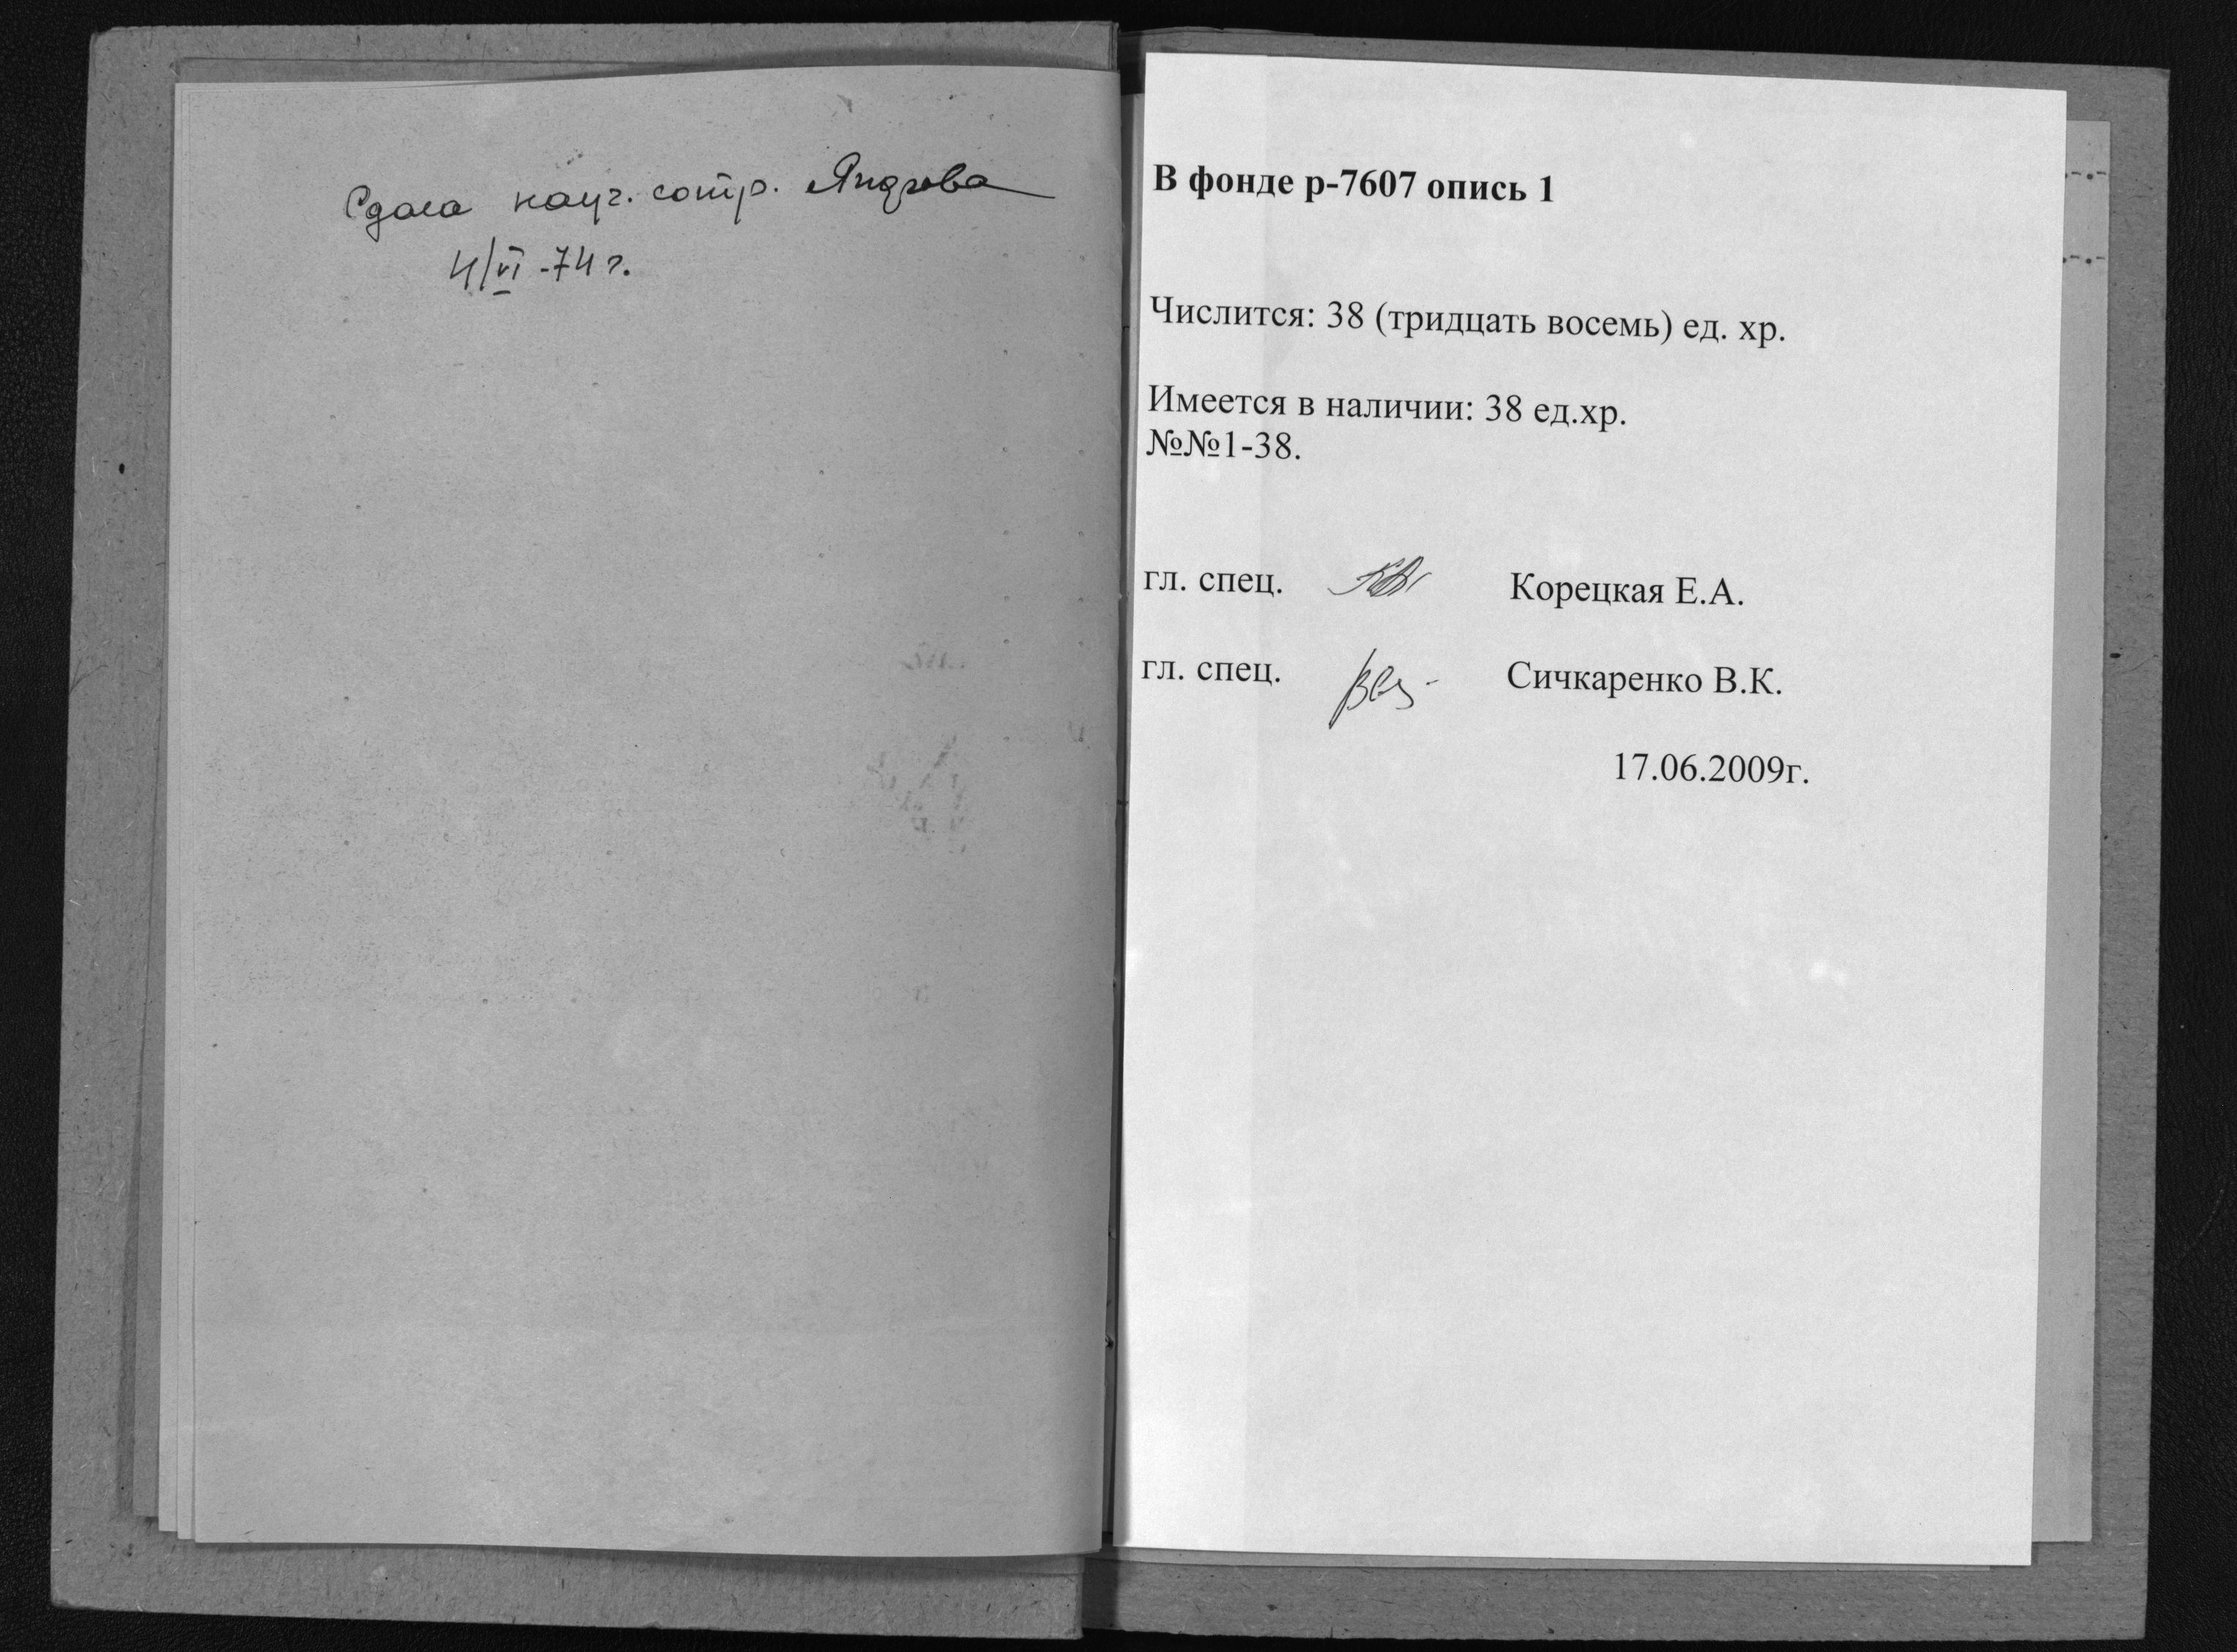 Сдала науч. сотр.
4/VI -74 г.
В фонде р-7607 опись 1
Числится: 38 (тридцать восемь) ед. хр.
Имеется в наличии: 38 ед.хр.
№№1-38.
гл. спец. Корецкая Е.А.
гл. спец. Сичкаренко В.К.
17.06.2009г.